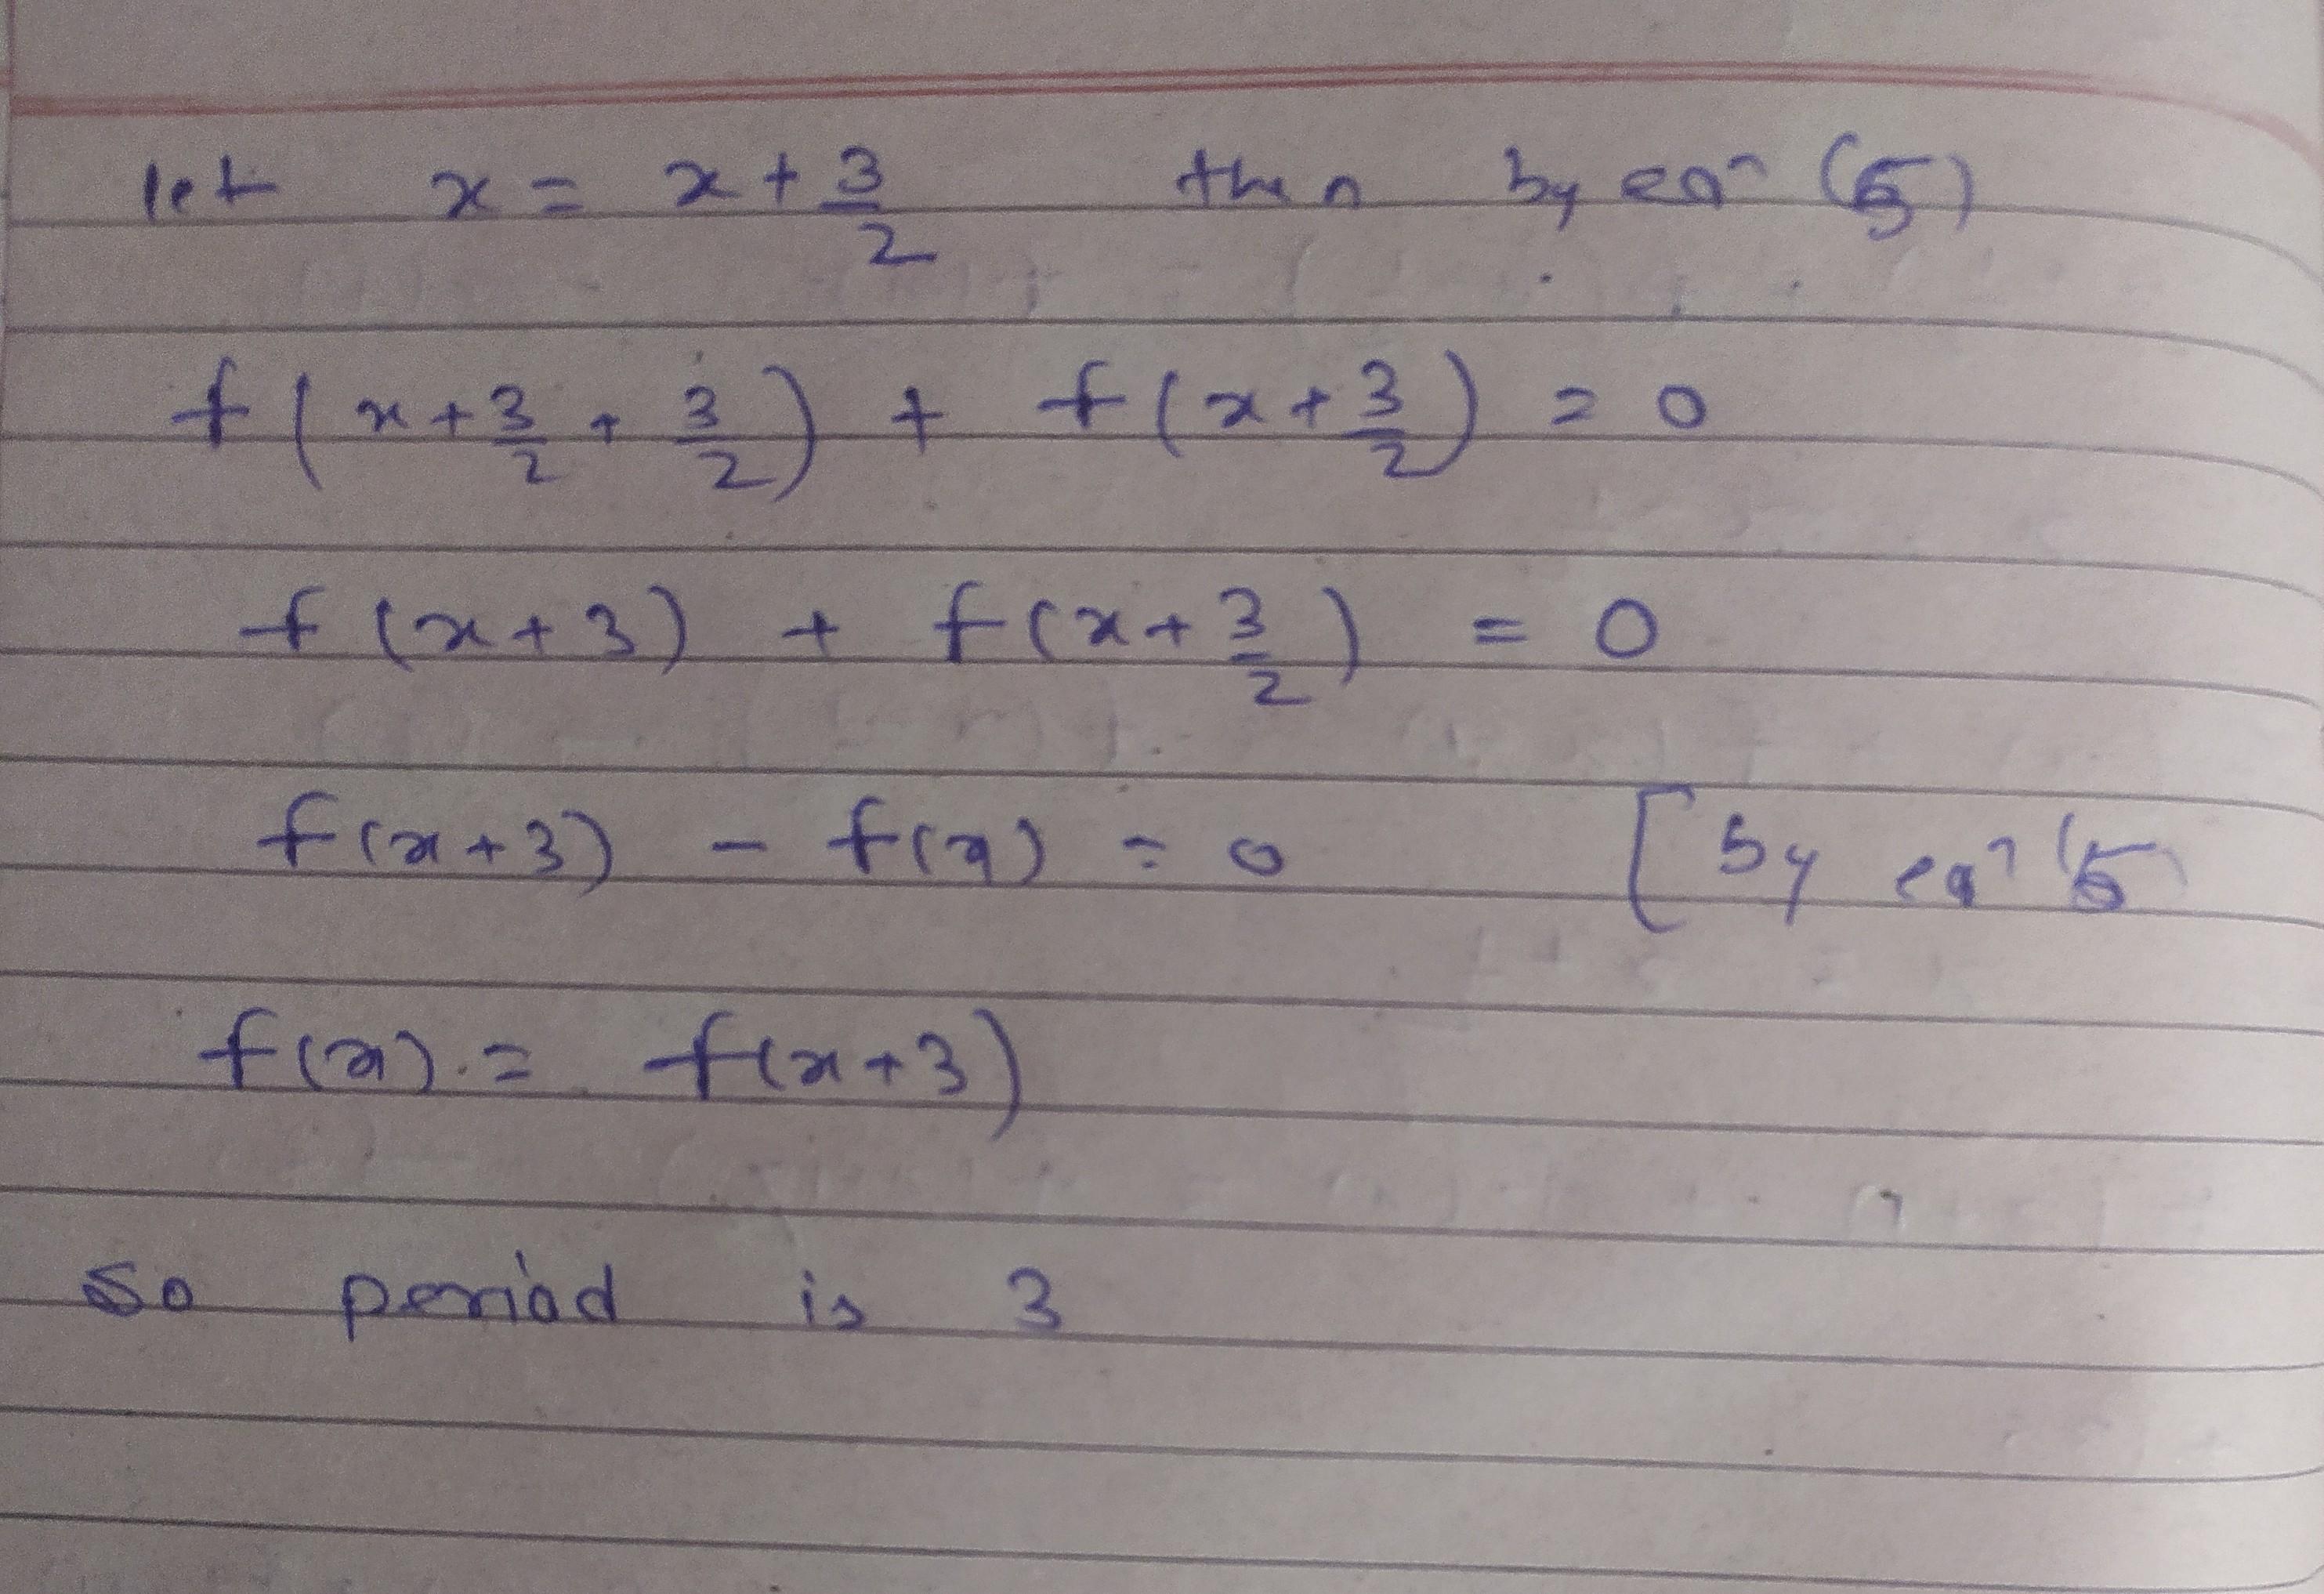 let x = x + 3/2 then by eqn (5)
f(x + 3/2 + 3/2) + f(x + 3/2) = 0
f(x + 3) + f(x + 3/2) = 0
f(x + 3) - f(x) = 0 [by eqn (5)
f(x) = f(x + 3)
So period is 3